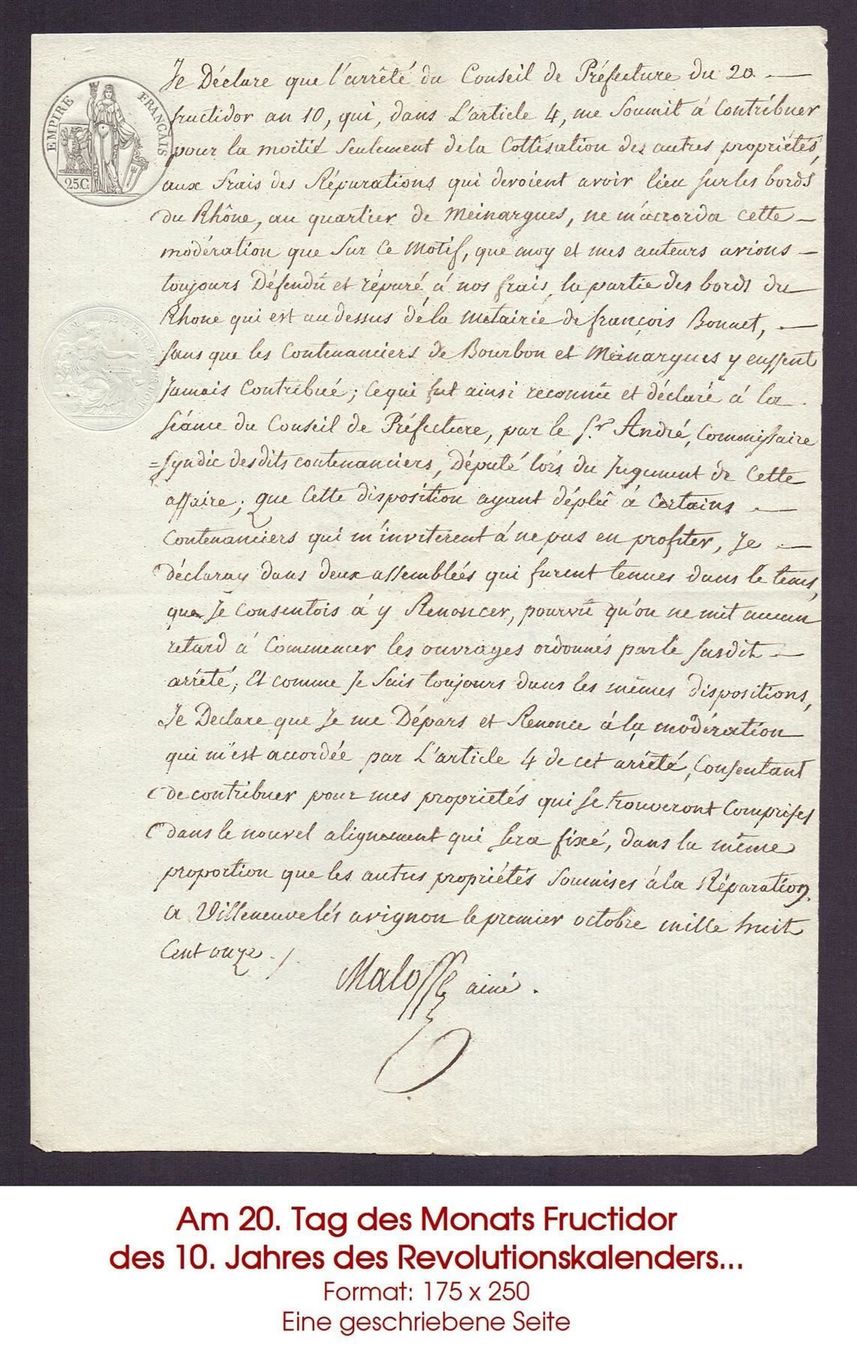 EMPIRE FRANÇAIS
25C
Je Déclare que l'arrêté du Conseil de Préfecture du 20 —
fructidor an 10, qui, dans L'article 4, me Soumit à Contribuer
pour la moitié Seulement de la Cottisation des autres propriétés,
aux frais des Réparations qui devoient avoir lieu sur les bords
du Rhône, au quartier de Meinargues, ne m'accorda cette —
modération que Sur Ce Motif, que moy et mes auteurs avions —
toujours Défendû et réparé à nos frais, la partie des bords du
Rhone qui est au dessus de la Metairie de françois Bonnet, —
sans que les Contenanciers de Bourbon et Meinargues y eussent
Jamais Contribué; Ce qui fut ainsi reconnu et déclaré à la
Séance du Conseil de Préfecture, par le Sr. André, Commissaire
=Syndic desdits contenanciers, Député lors du Jugement de Cette
affaire; que Cette disposition ayant déplû à Certains —
Contenanciers qui m'inviterent à ne pas en profiter, Je —
déclaray dans deux assemblées qui furent tenues dans le tems,
que Je Consentois à y Renoncer, pourvû qu'on ne mit aucun
retard à Commencer les ouvrages ordonnés par le susdit —
arrêté; Et comme Je suis toujours dans les mêmes dispositions,
Je Declare que Je me Dépars et Renonce à la modération
qui m'est accordée par L'article 4 de cet arrêté, Consentant
de contribuer pour mes propriétés qui se trouveront Comprises
dans le nouvel alignement qui sera fixé, dans la même
proportion que les autres propriétés Soumises à la Réparation.
a Villeneuve lès avignon le premier octobre mille huit
Cent onze./
Malosse ainé.
Am 20. Tag des Monats Fructidor
des 10. Jahres des Revolutionskalenders...
Format: 175 x 250
Eine geschriebene Seite